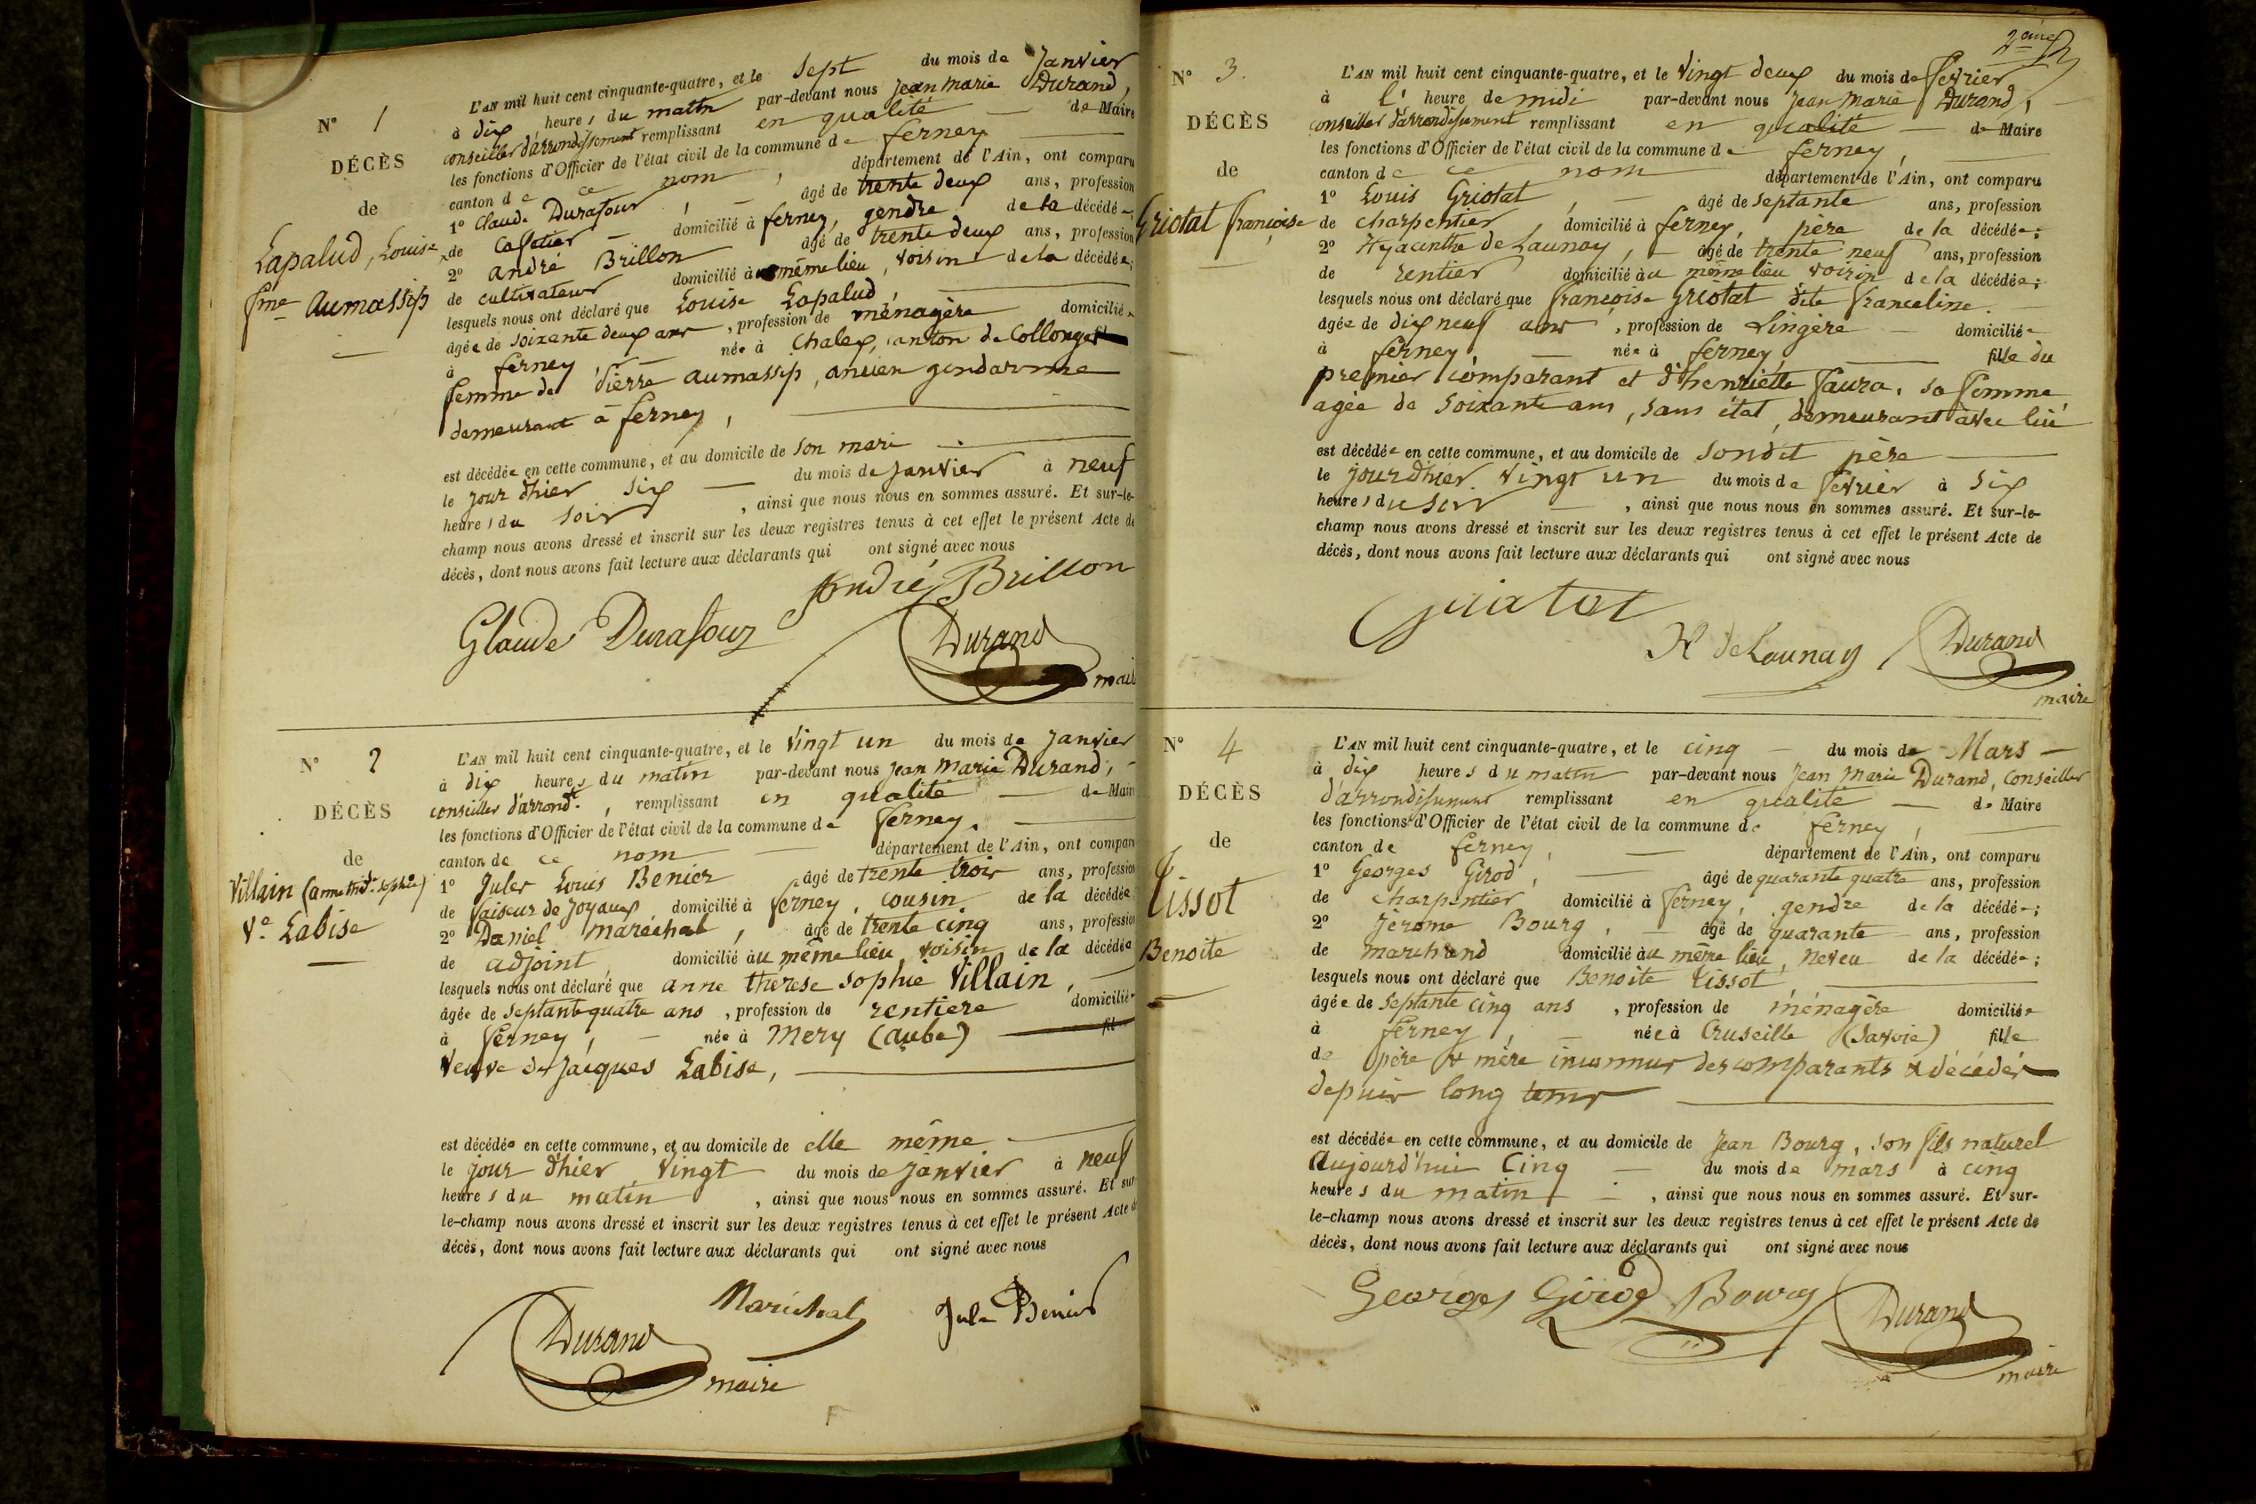 N° 1
DÉCÈS
de
Lapalud, Louise
fme Aumassip
L'AN mil huit cent cinquante-quatre, et le sept du mois de Janvier
à dix heures du matin par-devant nous Jean Marie Durand,
conseiller d'arrondissement remplissant en qualité de Maire
les fonctions d'Officier de l'état civil de la commune de ferney
canton de ce nom, département de l'Ain, ont comparu
1° Claude Durafour, âgé de trente deux ans, profession
de cafetier domicilié à ferney, gendre de la décédée;
2° andré Brillon âgé de trente deux ans, profession
de cultivateur domicilié au même lieu, voisin de la décédée;
lesquels nous ont déclaré que Louise Lapalud,
âgée de soixante deux ans, profession de ménagère domiciliée
à ferney, née à Chalex, canton de Collonges
femme de Pierre aumassip, ancien gendarme
demeurant à ferney,
est décédée en cette commune, et au domicile de son mari
le jour d'hier six du mois de Janvier à neuf
heures du soir, ainsi que nous nous en sommes assuré. Et sur-le-
champ nous avons dressé et inscrit sur les deux registres tenus à cet effet le présent Acte de
décès, dont nous avons fait lecture aux déclarants qui ont signé avec nous
André Brillon
Glaude Durafour
Durand
maire
N° 2
DÉCÈS
de
Villain (anne thse sophie)
Ve Labise
L'AN mil huit cent cinquante-quatre, et le vingt un du mois de Janvier
à dix heures du matin par-devant nous Jean Marie Durand,
conseiller d'arrondt, remplissant en qualité de Maire
les fonctions d'Officier de l'état civil de la commune de ferney,
canton de ce nom département de l'Ain, ont comparu
1° Jules Louis Benier âgé de trente trois ans, profession
de faiseur de joyaux domicilié à ferney, cousin de la décédée
2° Daniel maréchal, âgé de trente cinq ans, profession
de adjoint domicilié au même lieu, voisin de la décédée
lesquels nous ont déclaré que anne thérèse sophie Villain,
âgée de septante quatre ans, profession de rentière domiciliée
à ferney, née à Mery (aube) fil
veuve de Jacques Labise,
est décédée en cette commune, et au domicile de elle même
le jour d'hier vingt du mois de janvier à neuf
heures du matin, ainsi que nous nous en sommes assuré. Et sur
le-champ nous avons dressé et inscrit sur les deux registres tenus à cet effet le présent Acte de
décès, dont nous avons fait lecture aux déclarants qui ont signé avec nous
Maréchal Jules Benier
Durand
maire
2ème
N° 3.
DÉCÈS
de
Griotat françoise
L'AN mil huit cent cinquante-quatre, et le vingt deux du mois de fevrier
à l' heure de midi par-devant nous Jean Marie Durand,
conseiller d'arrondissement remplissant en qualité de Maire
les fonctions d'Officier de l'état civil de la commune de ferney,
canton de ce nom département de l'Ain, ont comparu
1° Louis Griotat, âgé de septante ans, profession
de charpentier, domicilié à ferney, père de la décédée;
2° Hyacinthe de Launay, âgé de trente neuf ans, profession
de rentier domicilié au même lieu voisin de la décédée;
lesquels nous ont déclaré que françoise Griotat dite franceline.
âgée de dix neuf ans, profession de Lingère domiciliée
à ferney, née à ferney, fille du
premier comparant et d'henriette faura, sa femme
agée de soixante ans, sans état, demeurant avec lui
est décédée en cette commune, et au domicile de sondit père
le jour d'hier vingt un du mois de fevrier à six
heures du soir, ainsi que nous nous en sommes assuré. Et sur-le-
champ nous avons dressé et inscrit sur les deux registres tenus à cet effet le présent Acte de
décès, dont nous avons fait lecture aux déclarants qui ont signé avec nous
Griotat
H de Launay Durand
maire
N° 4
DÉCÈS
de
Tissot
Benoite
L'AN mil huit cent cinquante-quatre, et le cinq du mois de Mars
à dix heures du matin par-devant nous Jean Marie Durand, conseiller
d'arrondissement remplissant en qualité de Maire
les fonctions d'Officier de l'état civil de la commune de ferney,
canton de ferney, département de l'Ain, ont comparu
1° Georges Girod, âgé de quarante quatre ans, profession
de charpentier domicilié à ferney, gendre de la décédée;
2° Jérome Bourg, âgé de quarante ans, profession
de marchand domicilié au même lieu, neveu de la décédée;
lesquels nous ont déclaré que Benoite Tissot,
âgée de septante cinq ans, profession de ménagère domiciliée
à ferney, née à Cruseille (Savoie) fille
de père & mère inconnus des comparants & décédés
depuis long tems
est décédée en cette commune, et au domicile de Jean Bourg, son fils naturel
aujourd'hui cinq du mois de mars à cinq
heures du matin, ainsi que nous nous en sommes assuré. Et sur-
le-champ nous avons dressé et inscrit sur les deux registres tenus à cet effet le présent Acte de
décès, dont nous avons fait lecture aux déclarants qui ont signé avec nous
Georges Girod Bourg Durand
maire